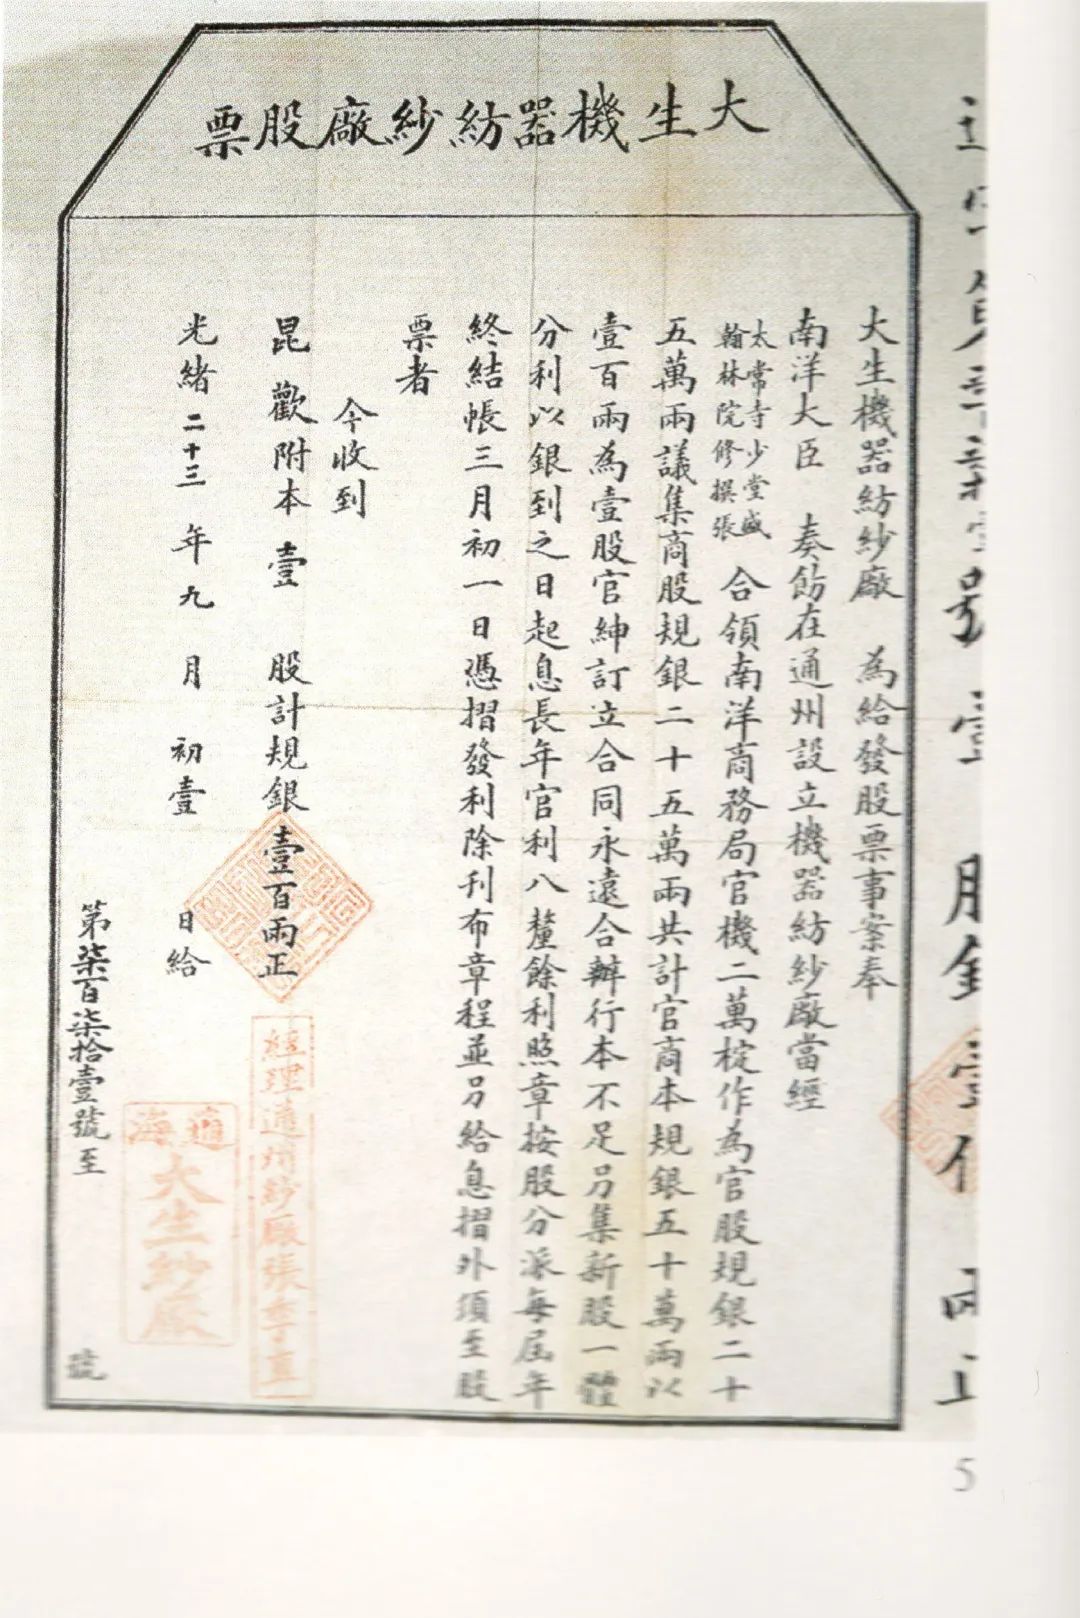 大生機器紡紗廠股票
大生機器紡紗廠 為給發股票事案奉
南洋大臣 奏飭在通州設立機器紡紗廠當經
太常寺少堂盛
翰林院修撰張
合領南洋商務局官機二萬椗作為官股規銀二十
五萬兩議集商股規銀二十五萬兩共計官商本規銀五十萬兩以
壹百兩為壹股官紳訂立合同永遠合辦行本不足另集新股一體
分利以銀到之日起息長年官利八釐餘利照章按股分派每屆年
終結帳三月初一日憑摺發利除刊布章程並另給息摺外須至股
票者
今收到
昆歡附本壹 股計規銀壹百兩正
光緒二十三年九月初壹日給
第柒百柒拾壹號至 號
經理通州紗廠張季直
通海
大生紗廠
5